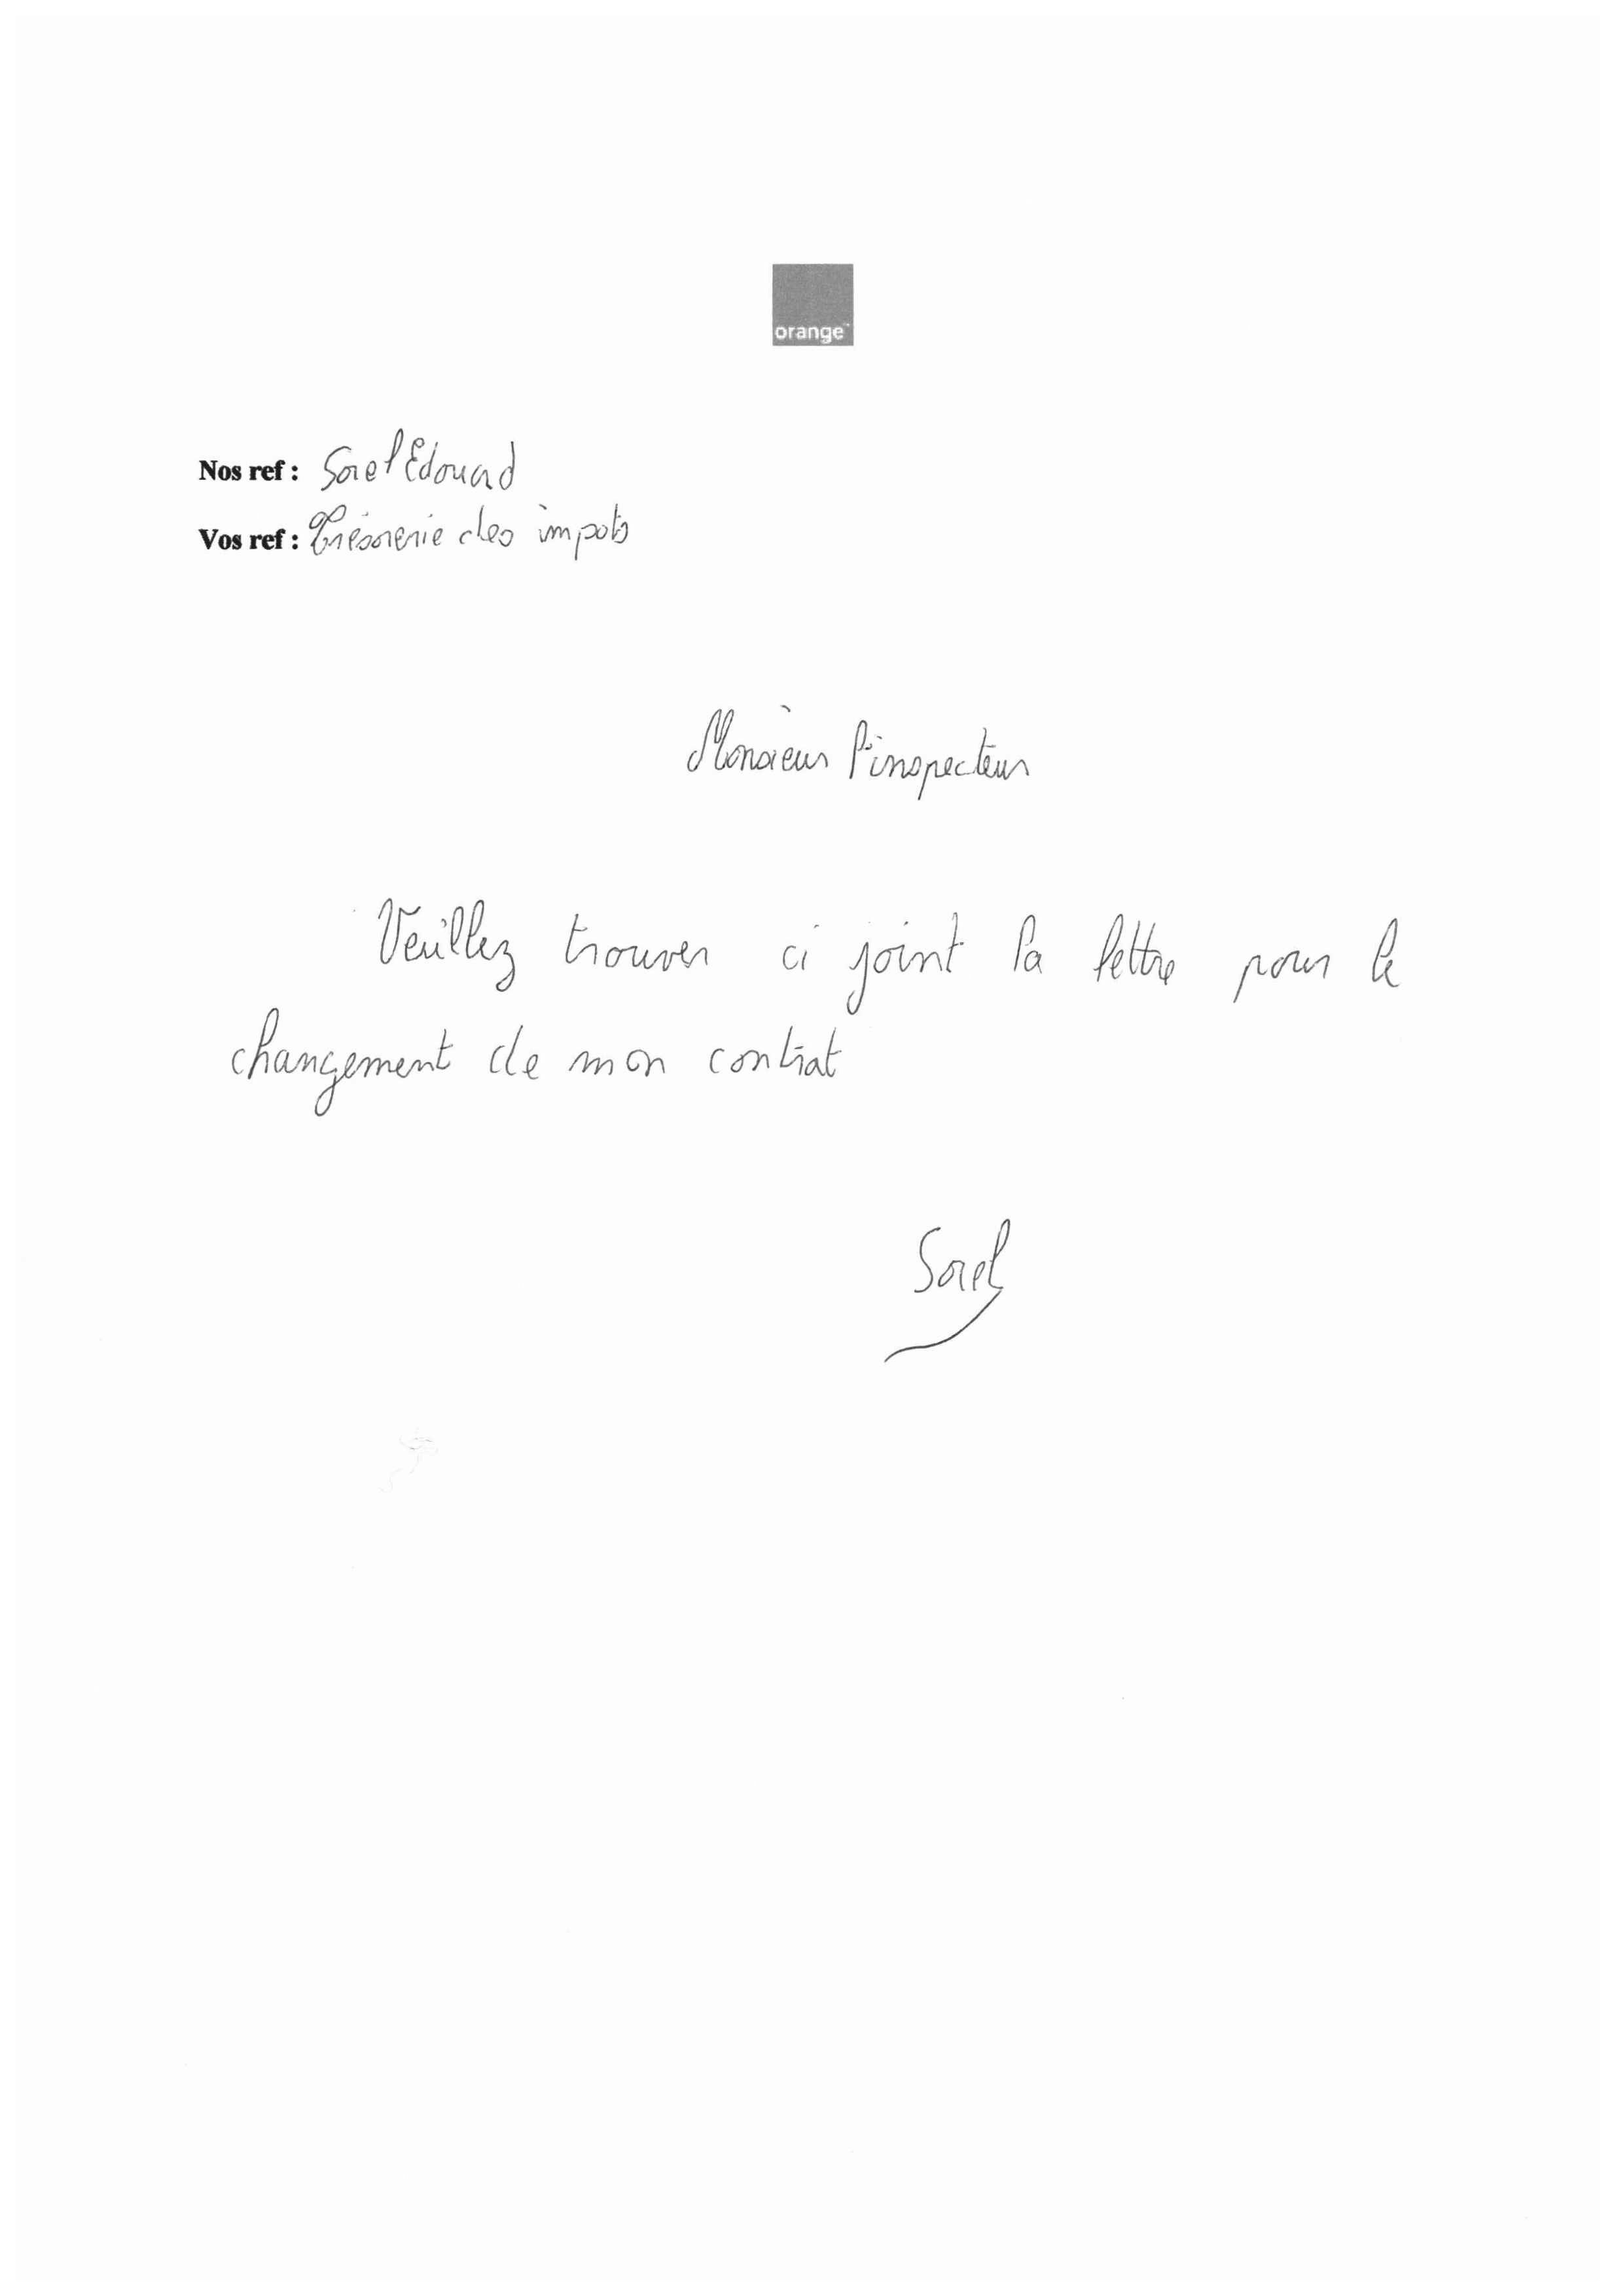 orange™
Nos ref : Sorel Edouard
Vos ref : Trésorerie des impots
Monsieur l'inspecteur
Veuillez trouver ci joint la lettre pour le
changement de mon contrat
Sorel